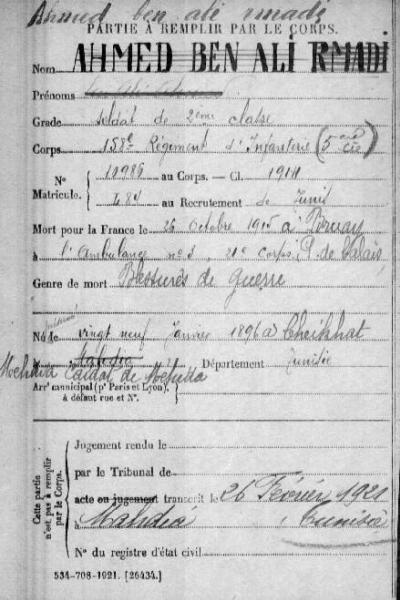 Ahmed ben ali rmadi
PARTIE À REMPLIR PAR LE CORPS.
Nom AHMED BEN ALI RMADI
Prénoms
Grade soldat de 2ème classe
Corps 158e Régiment d'Infanterie (5eme Cie)
N° Matricule. 10985 au Corps. — Cl. 1914
484 au Recrutement de Tunis
Mort pour la France le 26 octobre 1915 à
à l'Ambulance n° 3, 21e corps, P. de Calais
Genre de mort Blessures de guerre
Né le vingt neuf Janvier 1896 à Cheikhat
Mehdia Caïdat de Mehdia Département Tunisie
Arrt municipal (pr Paris et Lyon), à défaut rue et N°.
Cette partie n'est pas à remplir par le Corps.
Jugement rendu le
par le Tribunal de
acte ou jugement transcrit le 26 Février 1921
à Mahdia Tunisie
N° du registre d'état civil
534-708-1921. [26434.]